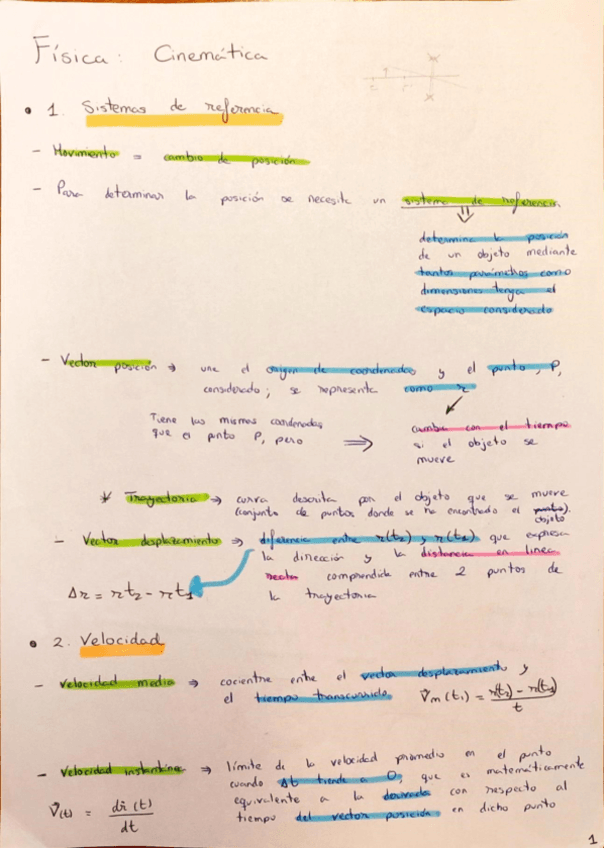 Física: Cinemática
• 1. Sistemas de referencia
- Movimiento = cambio de posición
- Para determinar la posición se necesita un sistema de referencia
determina la posición
de un objeto mediante
tantos parámetros como
dimensiones tenga el
espacio considerado
- Vector posición → une el origen de coordenadas y el punto, P,
considerado; se representa como r
Tiene las mismas coordenadas
que el punto P, pero ⇒
cambia con el tiempo
si el objeto se
mueve
* Trayectoria → curva descrita por el objeto que se mueve
(conjunto de puntos donde se ha encontrado el punto).
objeto
- Vector desplazamiento → diferencia entre r(t2) y r(t1) que expresa
la dirección y la distancia en línea
recta comprendida entre 2 puntos de
la trayectoria
Δr = rt2 - rt1
• 2. Velocidad
- Velocidad media → cociente entre el vector desplazamiento y
el tiempo transcurrido V̄m (t1) = r(t2) - r(t1) / t
- Velocidad instantánea → límite de la velocidad promedio en el punto
cuando Δt tiende a 0, que es matemáticamente
equivalente a la derivada con respecto al
tiempo del vector posición en dicho punto
V̄(t) = dr̄ (t) / dt
1